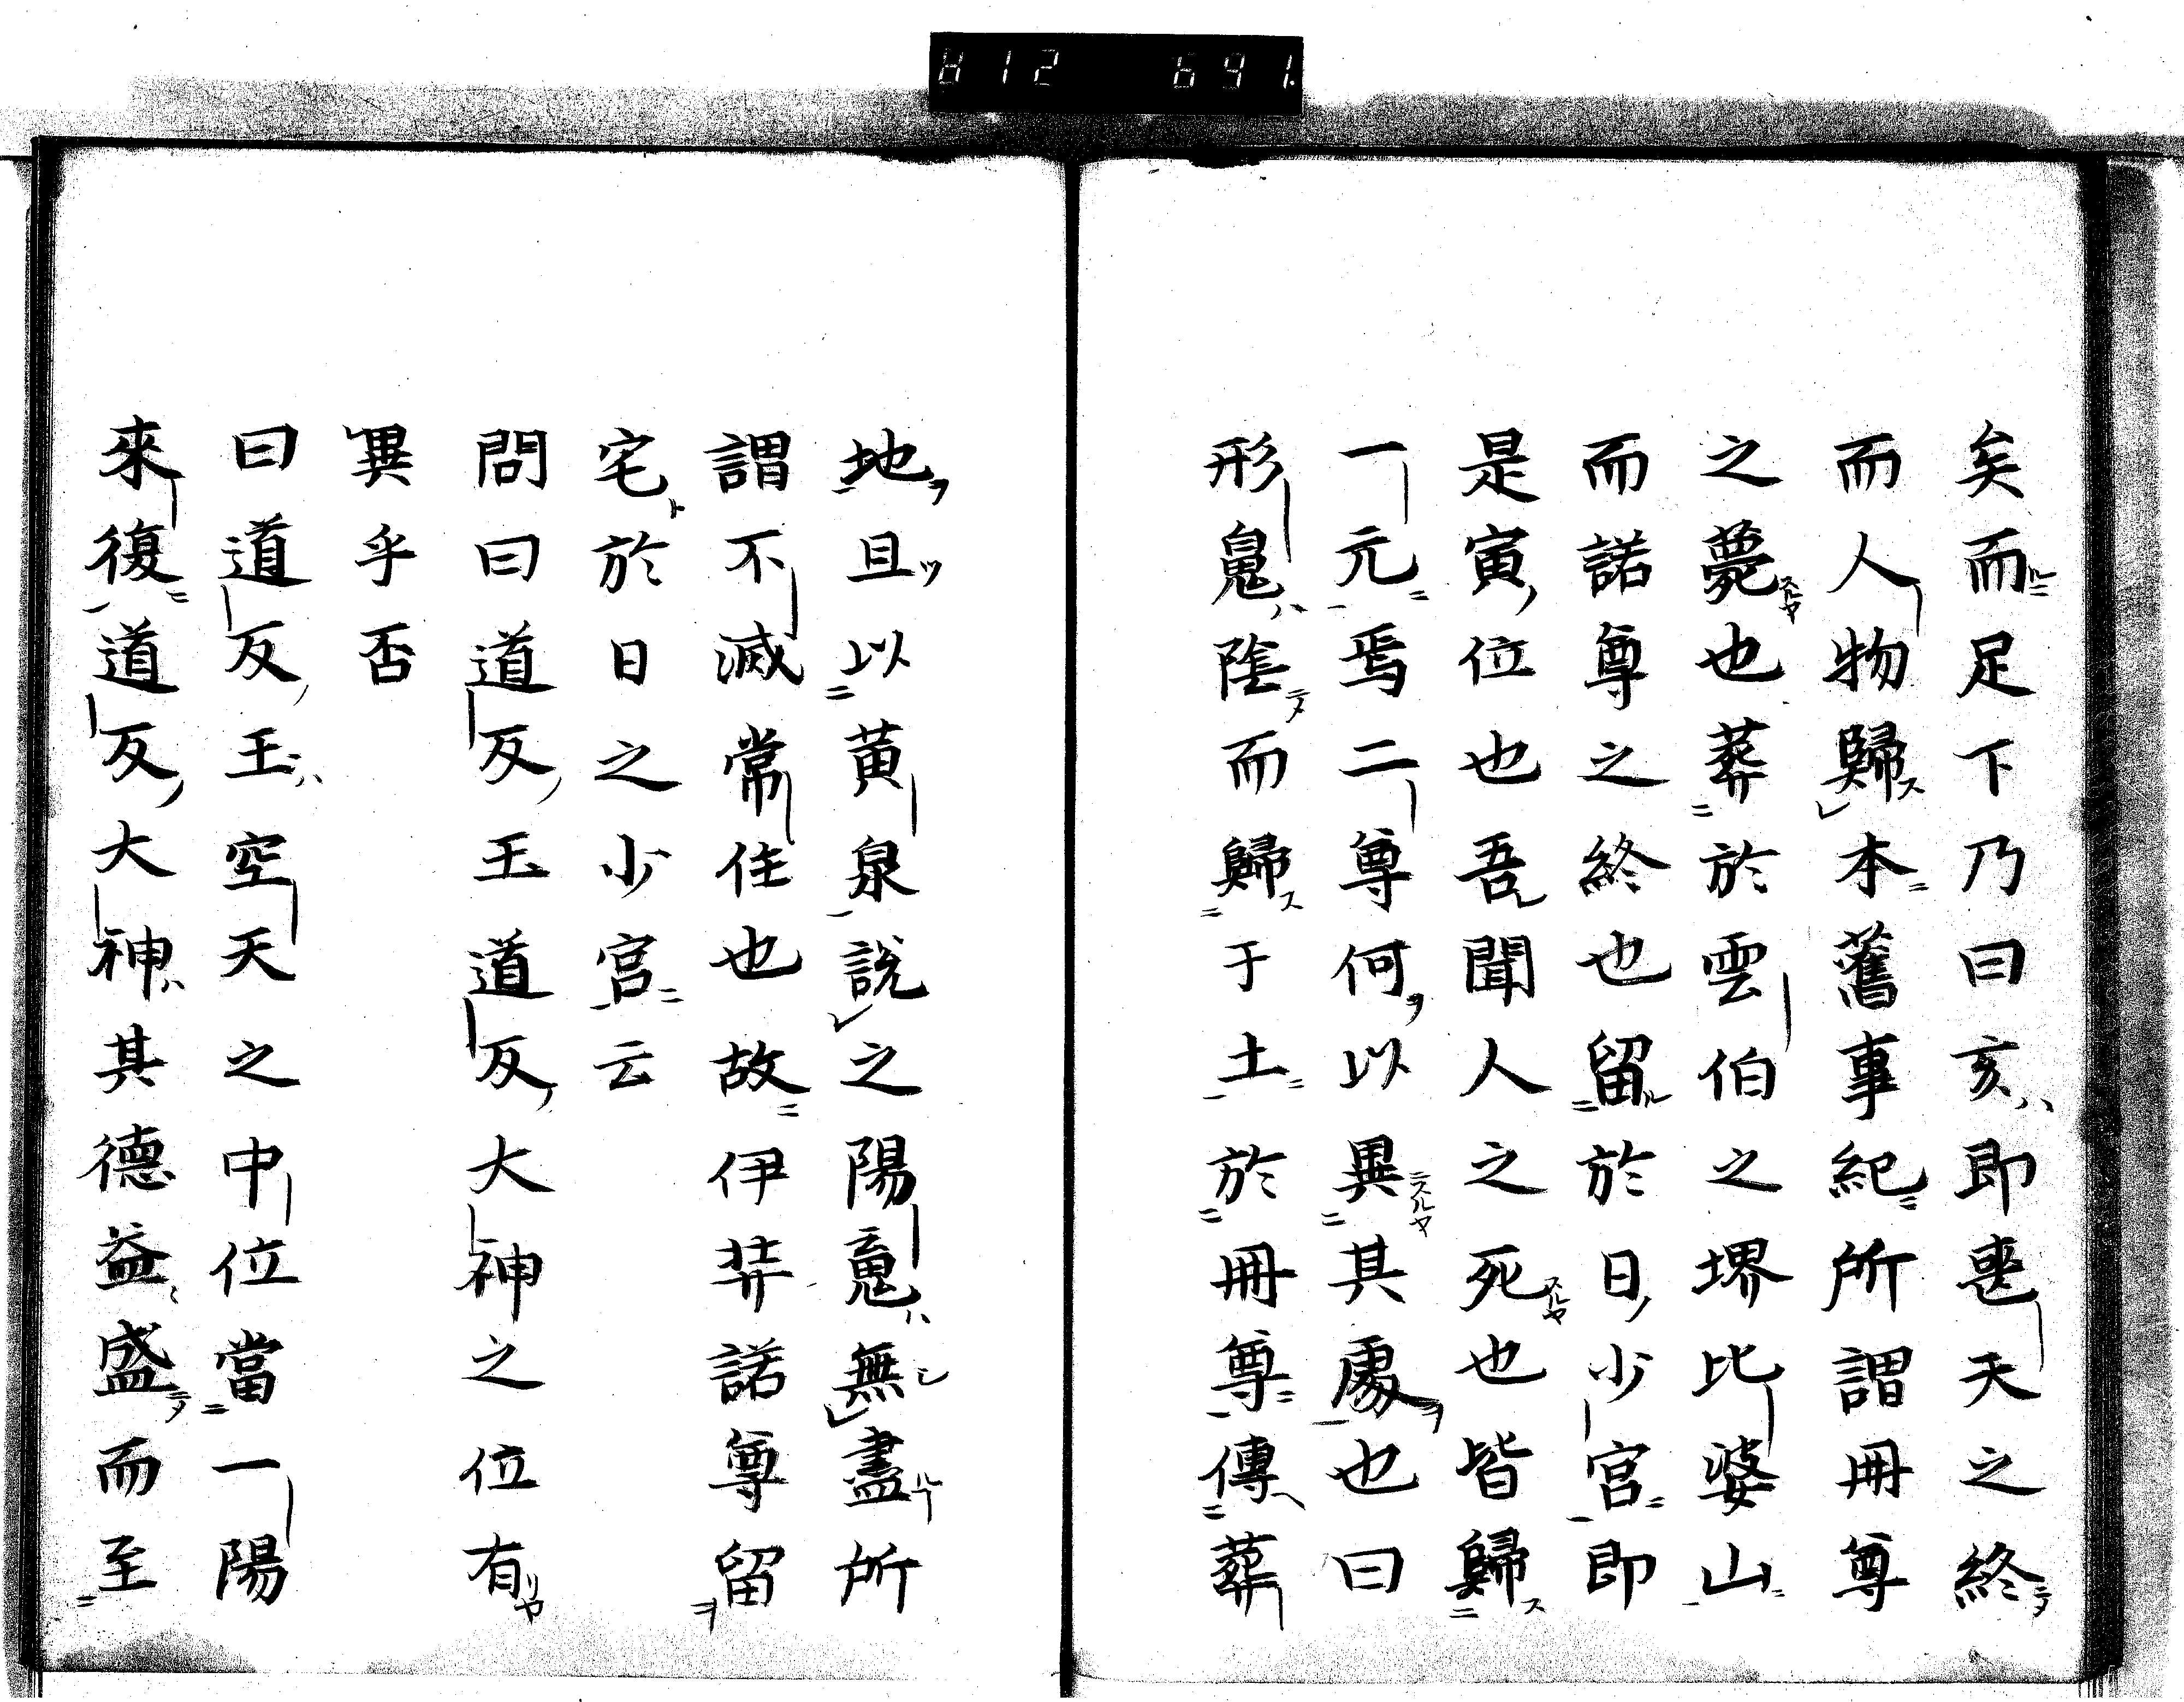 812 691.
矣而足下乃曰亥即喪天之終
而人物歸本舊事紀所謂冊尊
之薨也葬於雲伯之堺比婆山
而諾尊之終也留於日少宮即
是寅位也吾聞人之死也皆歸
一元焉二尊何以異其處也曰
形䰟陰而歸于土於冊尊傳葬
地且以黄泉説之陽䰟無盡所
謂不滅常住也故伊弉諾尊留
宅於日之少宮云
問曰道反玉道反大神之位有
異乎否
曰道反玉空天之中位當一陽
來復道反大神其德益盛而至